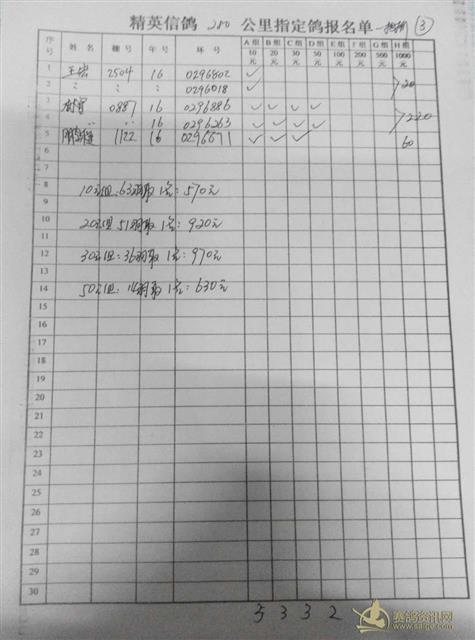 精英信鸽 200 公里指定鸽报名单 ③
序号 姓名 棚号 年号 环号 A组10元 B组20元 C组30元 D组50元 E组100元 F组200元 G组500元 H组1000元
1 王宏 2504 16 0296802 ✓
2 〃 〃 〃 0296018 ✓ >20
3 0887 16 0296886 ✓ ✓ ✓ ✓
4 〃 〃 16 0296263 ✓ ✓ ✓ ✓ >220
5 1122 16 0296671 ✓ ✓ ✓ 60
6
7
8 10元组:63羽取1名:570元
9
10 20元组 51羽取1名:920元
11
12 30元组:36羽取1名:970元
13
14 50元组:14羽取1名:630元
15
16
17
18
19
20
21
22
23
24
25
26
27
28
29
30
5 3 3 2
赛鸽资讯网
www.saige.com